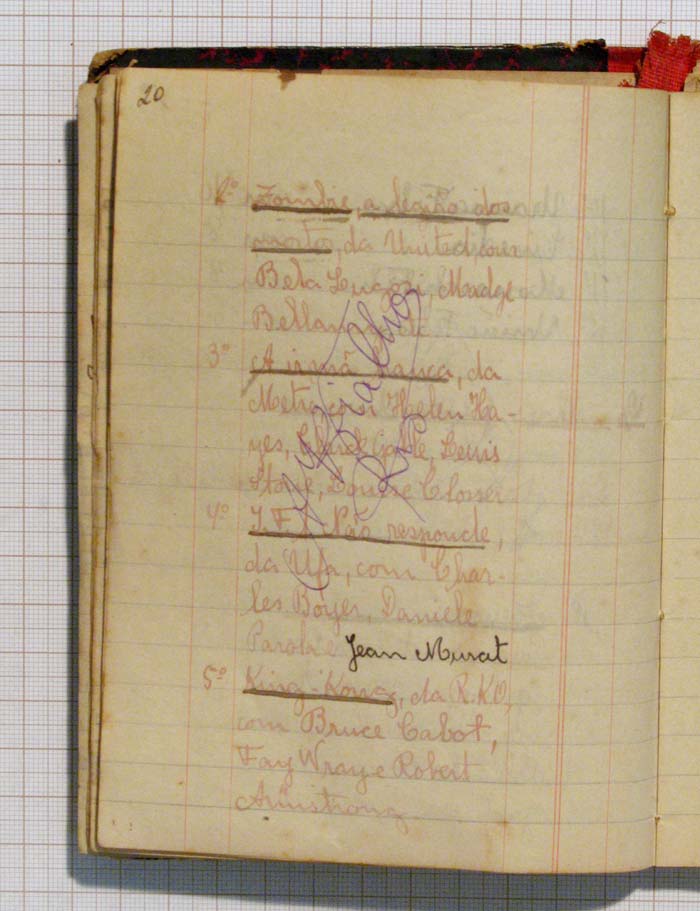 20
2º Zombie, a legião dos
mortos, da United com
Bela Lugosi, Madge
Bellamy
3º A irmã branca, da
Metro com Helen Ha-
yes, Clark Gable, Lewis
Stone, Louise Closser
4º I.F.1 Não responde,
da Ufa, com Char-
les Boyer, Daniele
Parola e Jean Murat
5º King-Kong, da R.K.O,
com Bruce Cabot,
Fay Wray e Robert
Armstrong.